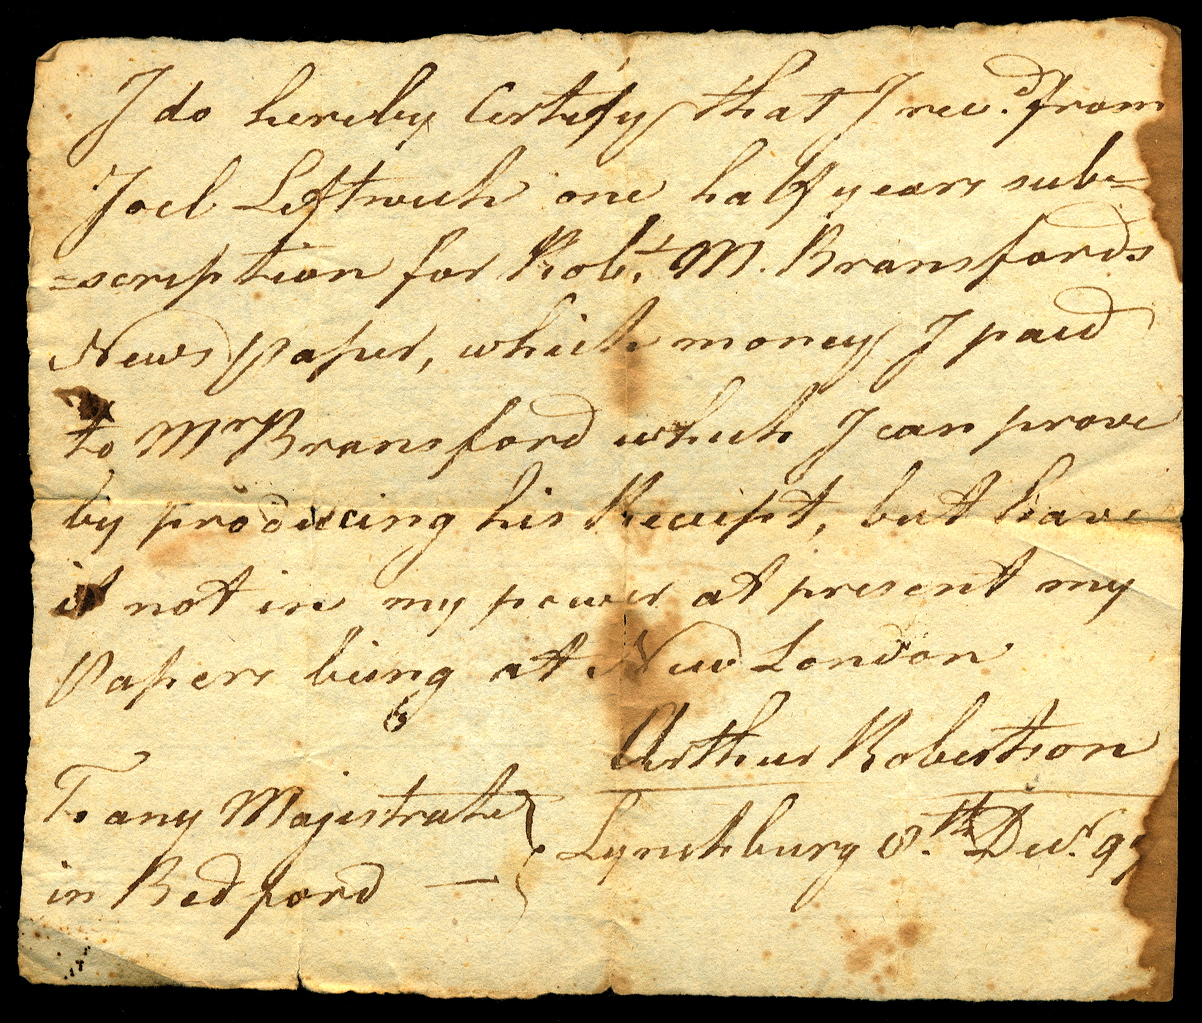 I do hereby Certify that I recd. from
Joel Leftwich one half years sub=
=scription for Robt. M. Bransfords
News Paper, which money I paid
to Mr Bransford which I can prove
by producing his Receipt, but have
it not in my power at present my
Papers being at New London
Arthur Robertson
To any Majestrate
in Bedford —
Lynchburg 8th. Decr.